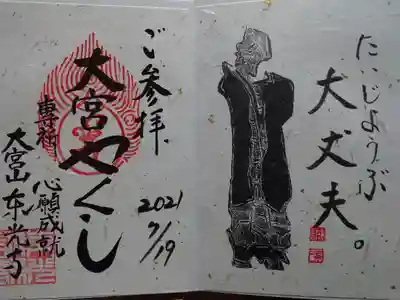 たいじようぶ
大丈夫。
ご参拝
2021
7/19
大宮やくし
専祈
心願成就
大宮山東光寺